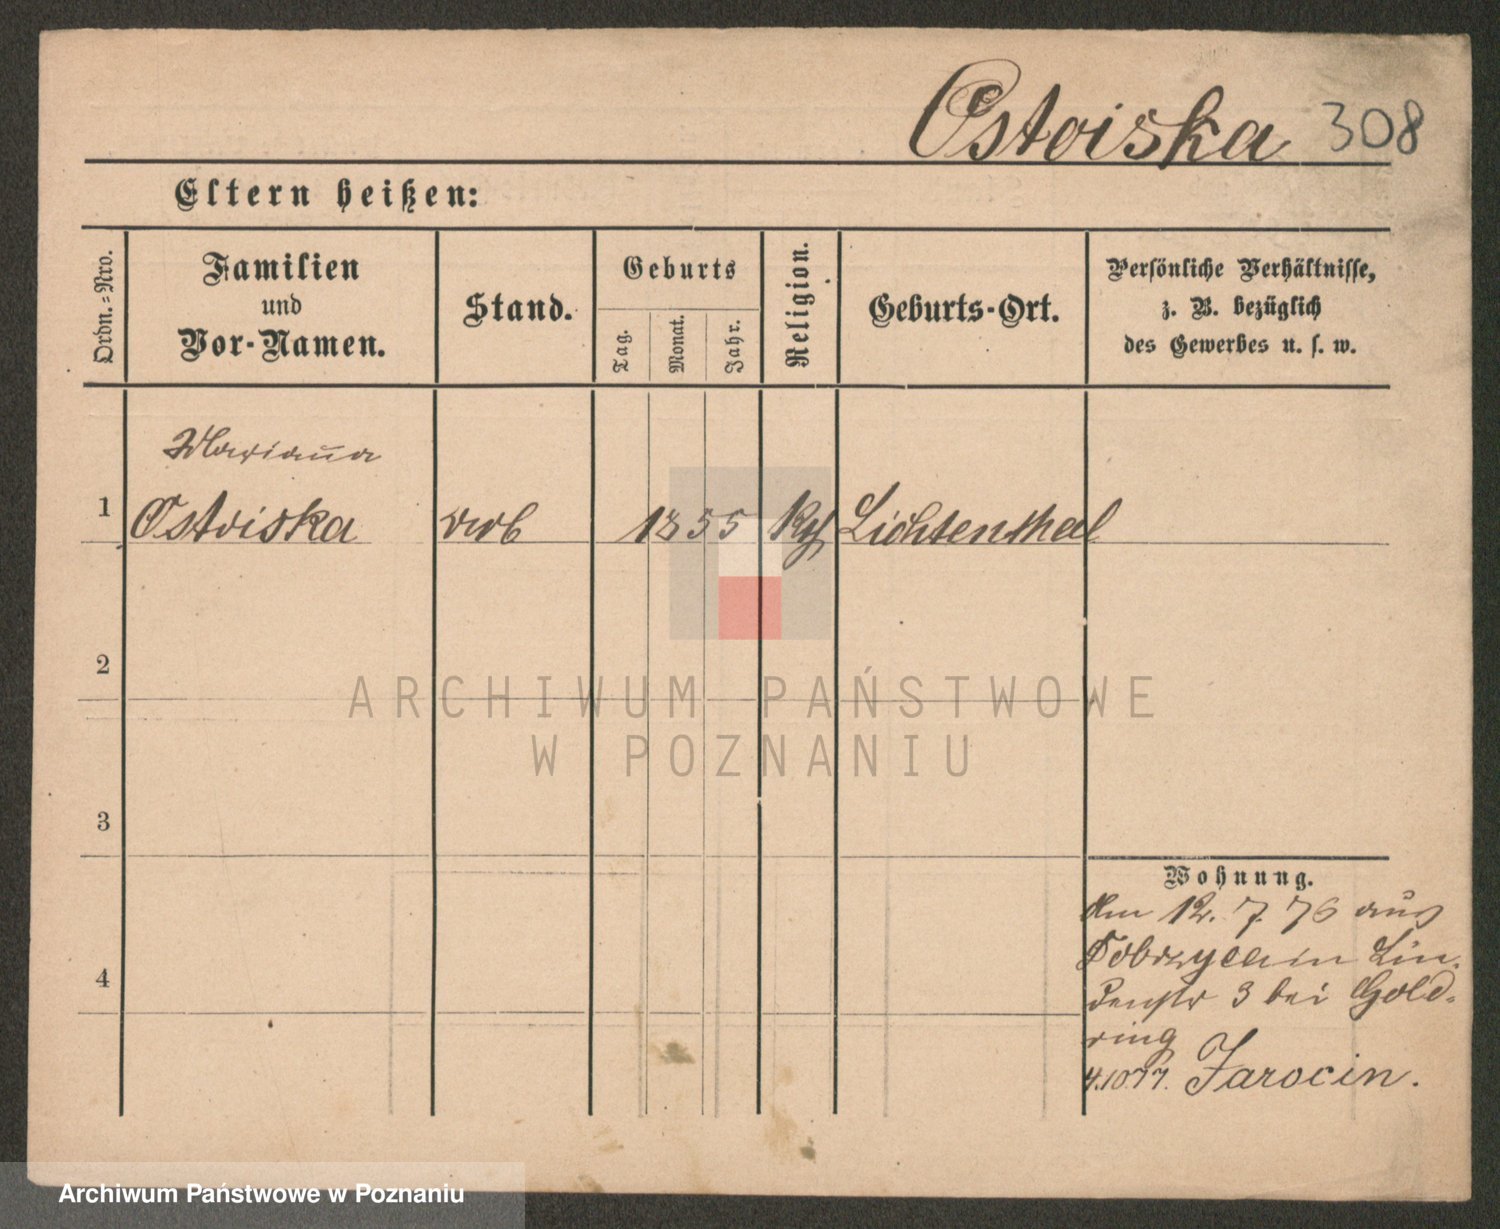 Ostoiska 308
Eltern heißen:
Ordn.=Nro.
Familien
und
Vor-Namen.
Stand.
Geburts
Tag.
Monat.
Jahr.
Religion.
Geburts-Ort.
Persönliche Verhältnisse,
z. B. bezüglich
des Gewerbes u. s. w.
Marianna
1 Ostoiska 1855 Lichtenthal
2
3
4
Wohnung.
Am 12. 7. 76 aus
Dobrzyca in Lin-
denstr 3 bei Gold-
ring
4.10.77. Jarocin.
ARCHIWUM PAŃSTWOWE
W POZNANIU
Archiwum Państwowe w Poznaniu